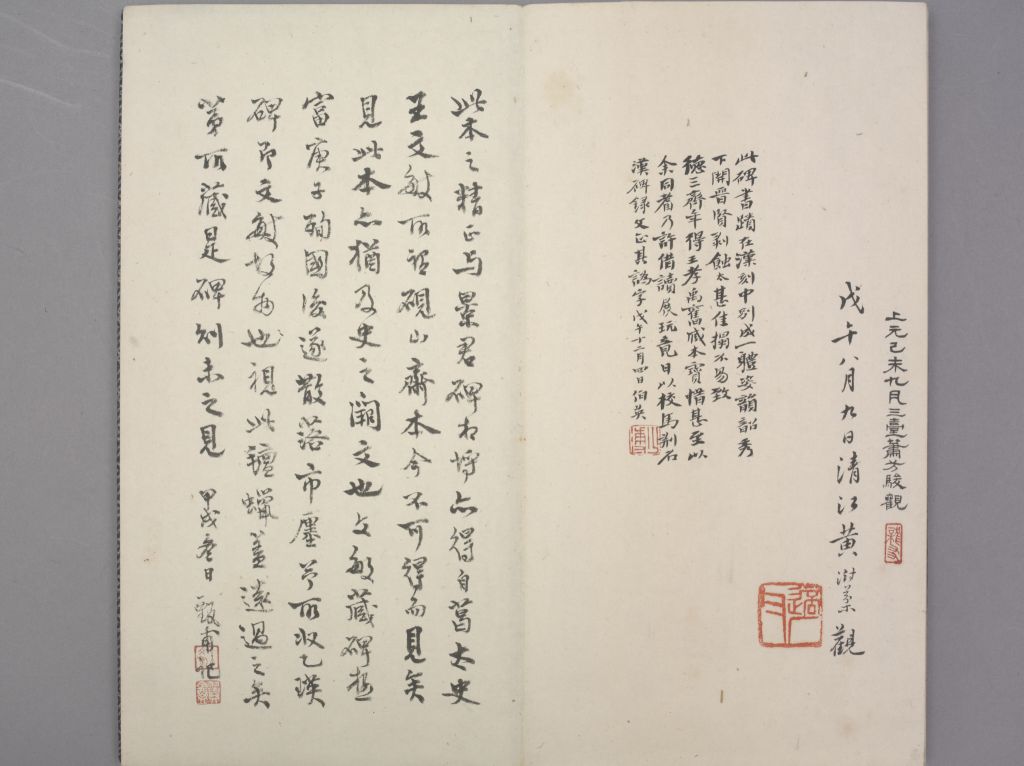 上元己未九月三臺蕭方駿觀
戊午八月九日清江黃澍棻觀
此碑書蹟在漢刻中別成一體姿韻韶秀
下開晉賢剝蝕太甚佳搨不易致
德三齋年得王孝禹舊咸本寶惜甚至以
余同耆乃許借讀展玩竟日以校馬劍石
漢碑錄文正其譌字戊午十二月四日伯英
此本之精正与景君碑相埒亦得自莒太史
王文敏所詔硯山齋本今不可得而見矣
見此本亦猶及史之闕文也文敏藏碑極
富庚子殉國後遂散落市廛予所收乙瑛
碑即文敏故物也視此氊蠟蓋遠過之矣
第所藏是碑刻未之見 甲戌叄日 毅甫記